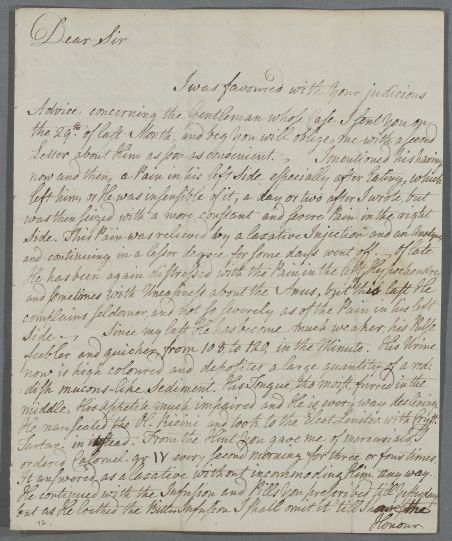 Dear Sir
I was favoured with your judicious
Advice concerning the Gentleman whose Case I sent you on
the 29th of last Month, and beg you will oblige me with a second
Letter about Him as soon as convenient. I mentioned his having
now and then, a Pain in his left Side especially after Eating, which
left him, or He was insensible of it, a day or two after I wrote, but
was then seized with a more constant and severe Pain in the right
Side. This Pain was relieved by a laxative Injection and an Anodyne
and continuing in a lesser degree for some days went off. Of late
He has been again distressed with the Pain in the left Hypochondre,
and sometimes with Uneasiness about the Anus, but this last He
complains seldomer, and not so severely as of the Pain in his left
Side. Since my last He has become much weaker, his Pulse
feebler and quicker, from 108 to 120, in the Minute. His Urine
now is high coloured and deposites a large quantity of a red
dish mucous-like Sediment. His Tongue is most furred in the
middle, His Appetite much impaired and He is every way declining.
He nauseated the Ol. Ricini and took to the Elect. Lenitiv. with Cryst.
Tartar. in its stead. From the Hint You gave me of mercurials I
ordered Calomel. gr IV every second morning for three or four times.
It answered as a laxative without incommoding Him any way.
He continued with the Infusion and Pills You prescribed till yesterday
but as He loathed the Bitter Infusion I shall omit it till I have the
Honour
72.